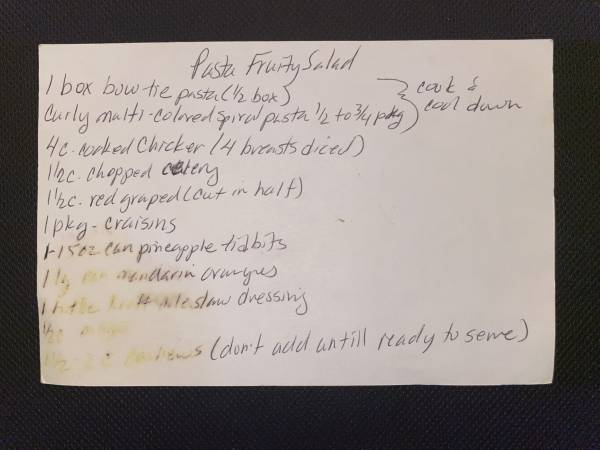 Pasta Fruity Salad
1 box bow-tie pasta (1/2 box)
Curly multi-colored spiral pasta 1/2 to 3/4 pkg
cook &
cool down
4c. cooked chicken (4 breasts diced)
1 1/2 c. chopped celery
1 1/2 c. red graped (cut in half)
1 pkg - craisins
1-15oz can pineapple tidbits
1 lg can mandarin oranges
1 bottle Kraft coleslaw dressing
1/2c mayo
1 1/2 - 2 c cashews (don't add untill ready to serve)